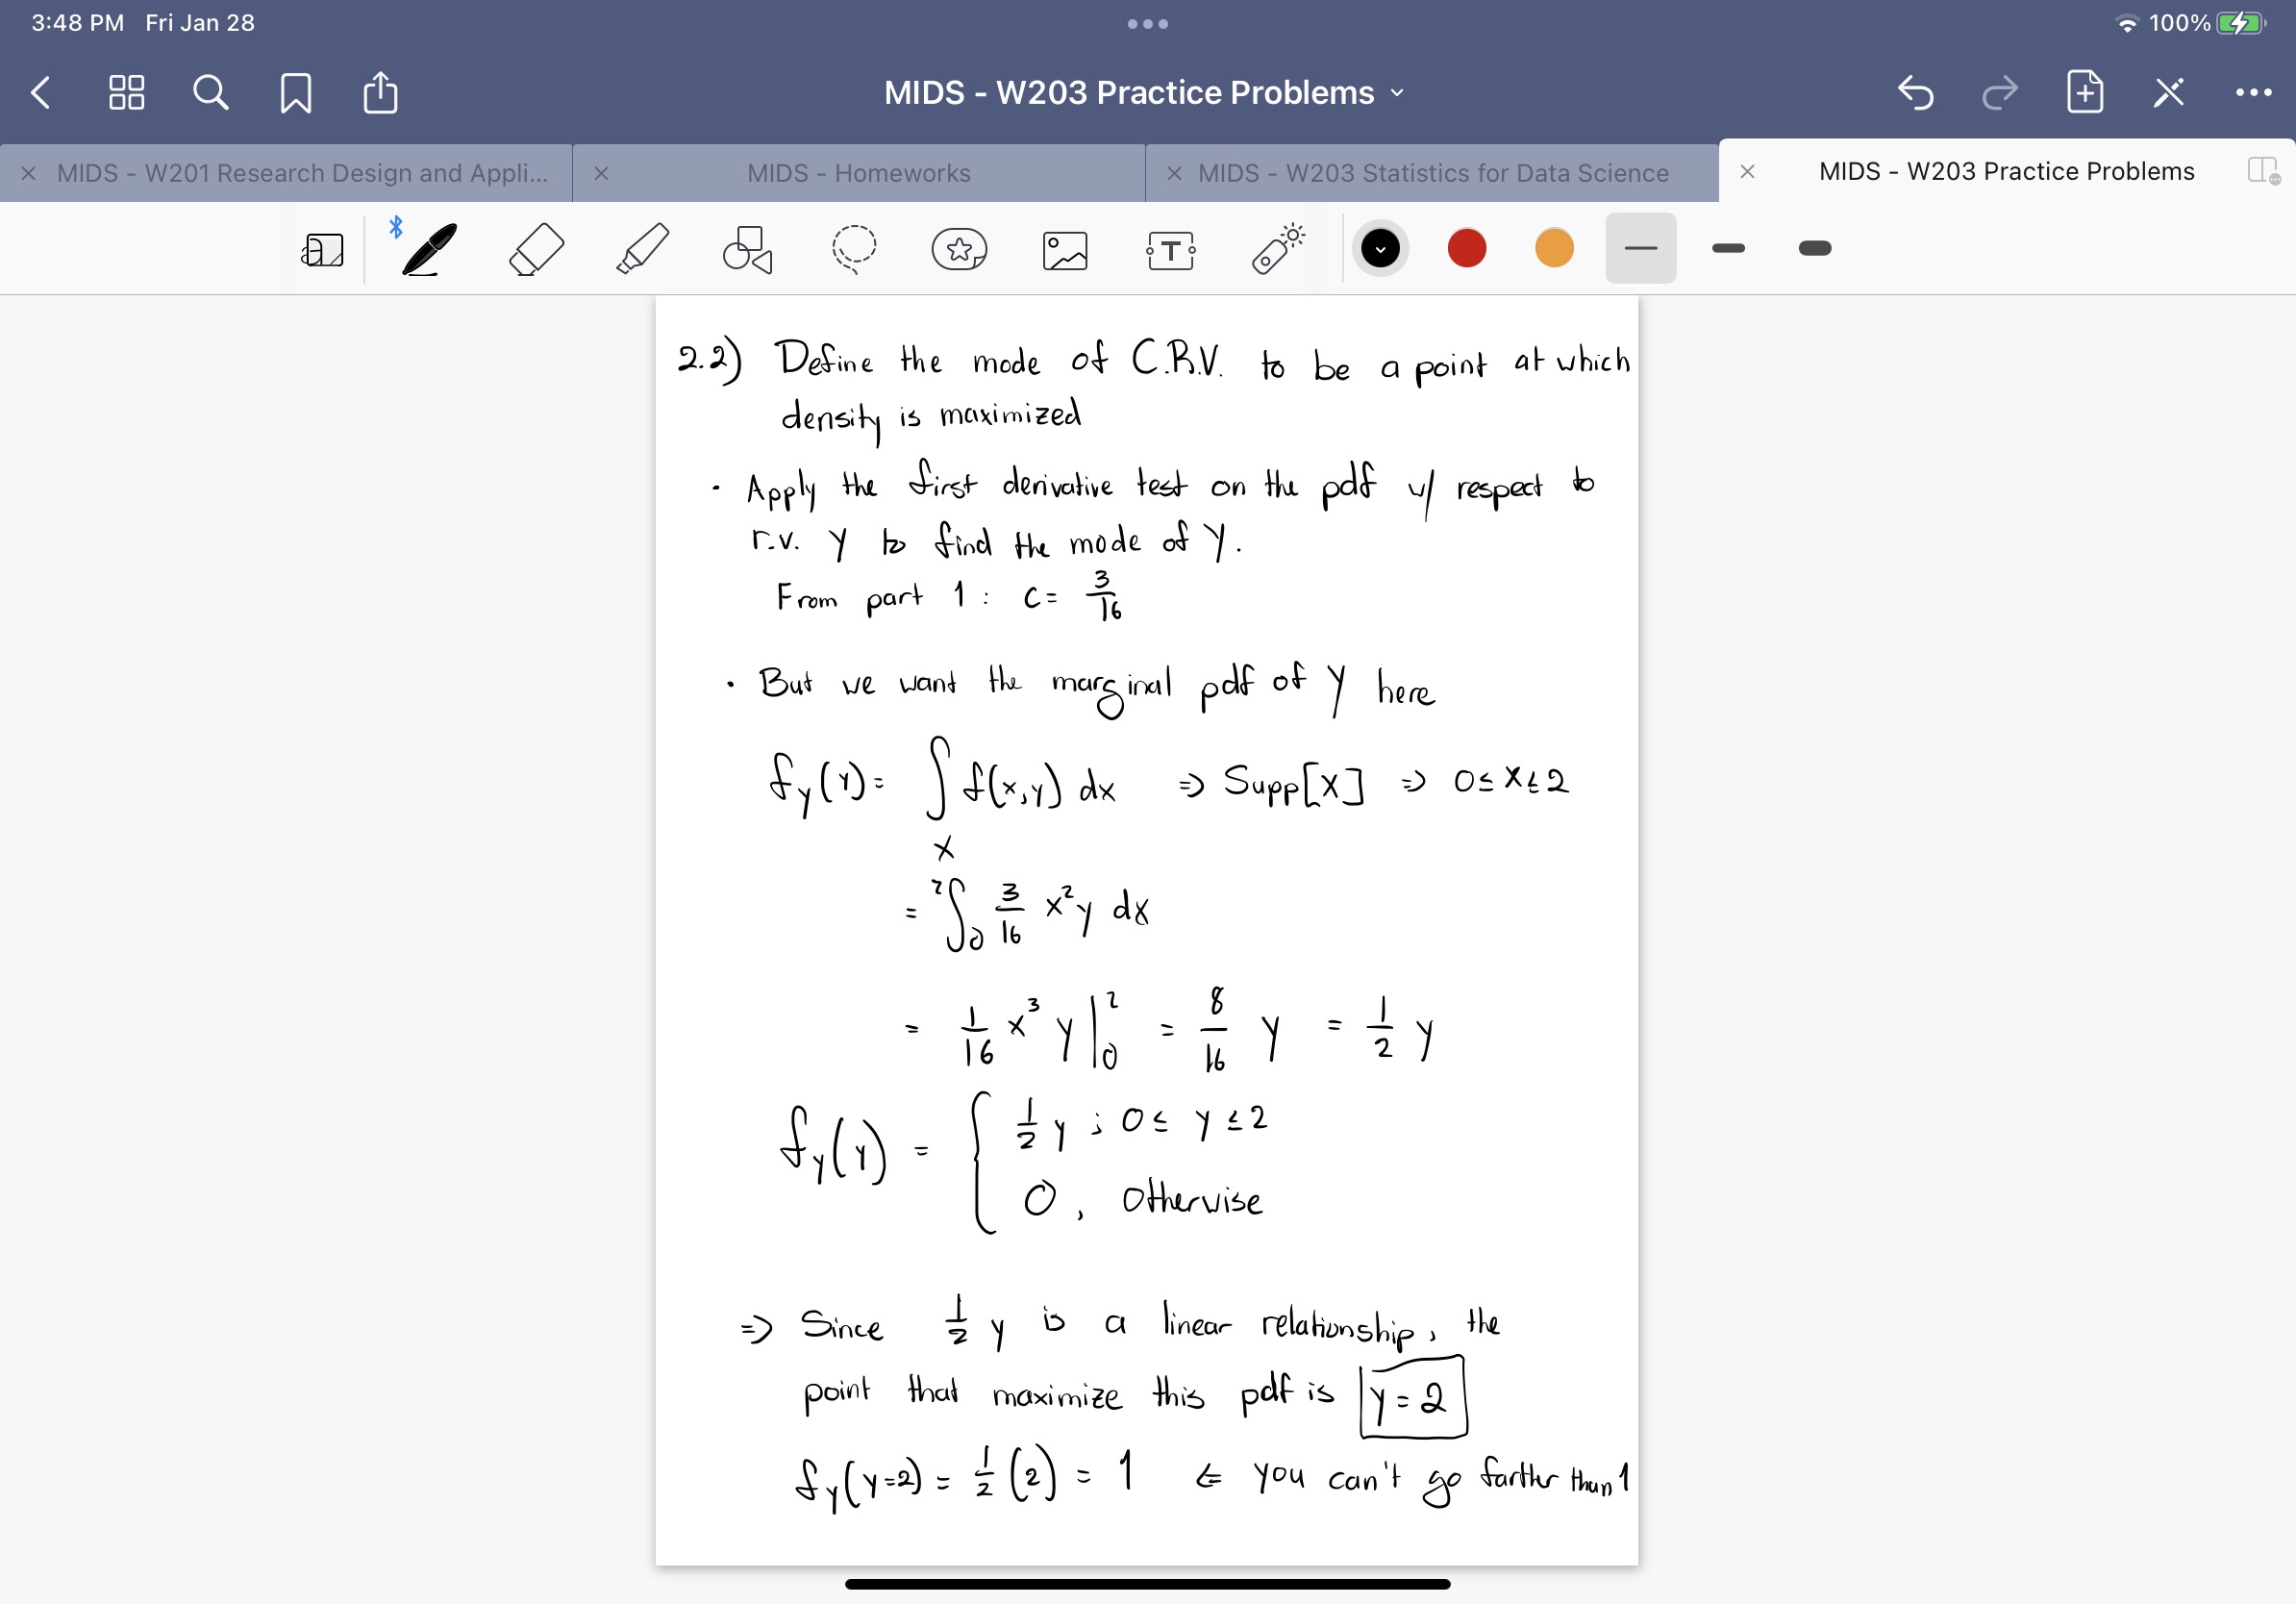 3:48 PM Fri Jan 28
100%
MIDS - W203 Practice Problems
MIDS - W201 Research Design and Appli...
MIDS - Homeworks
MIDS - W203 Statistics for Data Science
MIDS - W203 Practice Problems
2.2) Define the mode of C.R.V. to be a point at which
density is maximized
· Apply the first derivative test on the pdf w/ respect to
r.v. Y to find the mode of Y.
From part 1: c = 3/16
· But we want the marginal pdf of Y here
f_Y(Y) = ∫_X f(x,y) dx ⇒ Supp[X] ⇒ 0 ≤ X ≤ 2
= ²∫₀ 3/16 x²y dx
= 1/16 x³ y |₀² = 8/16 y = 1/2 y
f_Y(Y) = { 1/2 y ; 0 ≤ y ≤ 2
0, Otherwise
⇒ Since 1/2 y is a linear relationship, the
point that maximize this pdf is y = 2
f_Y(Y=2) = 1/2 (2) = 1 ⇐ you can't go farther than 1